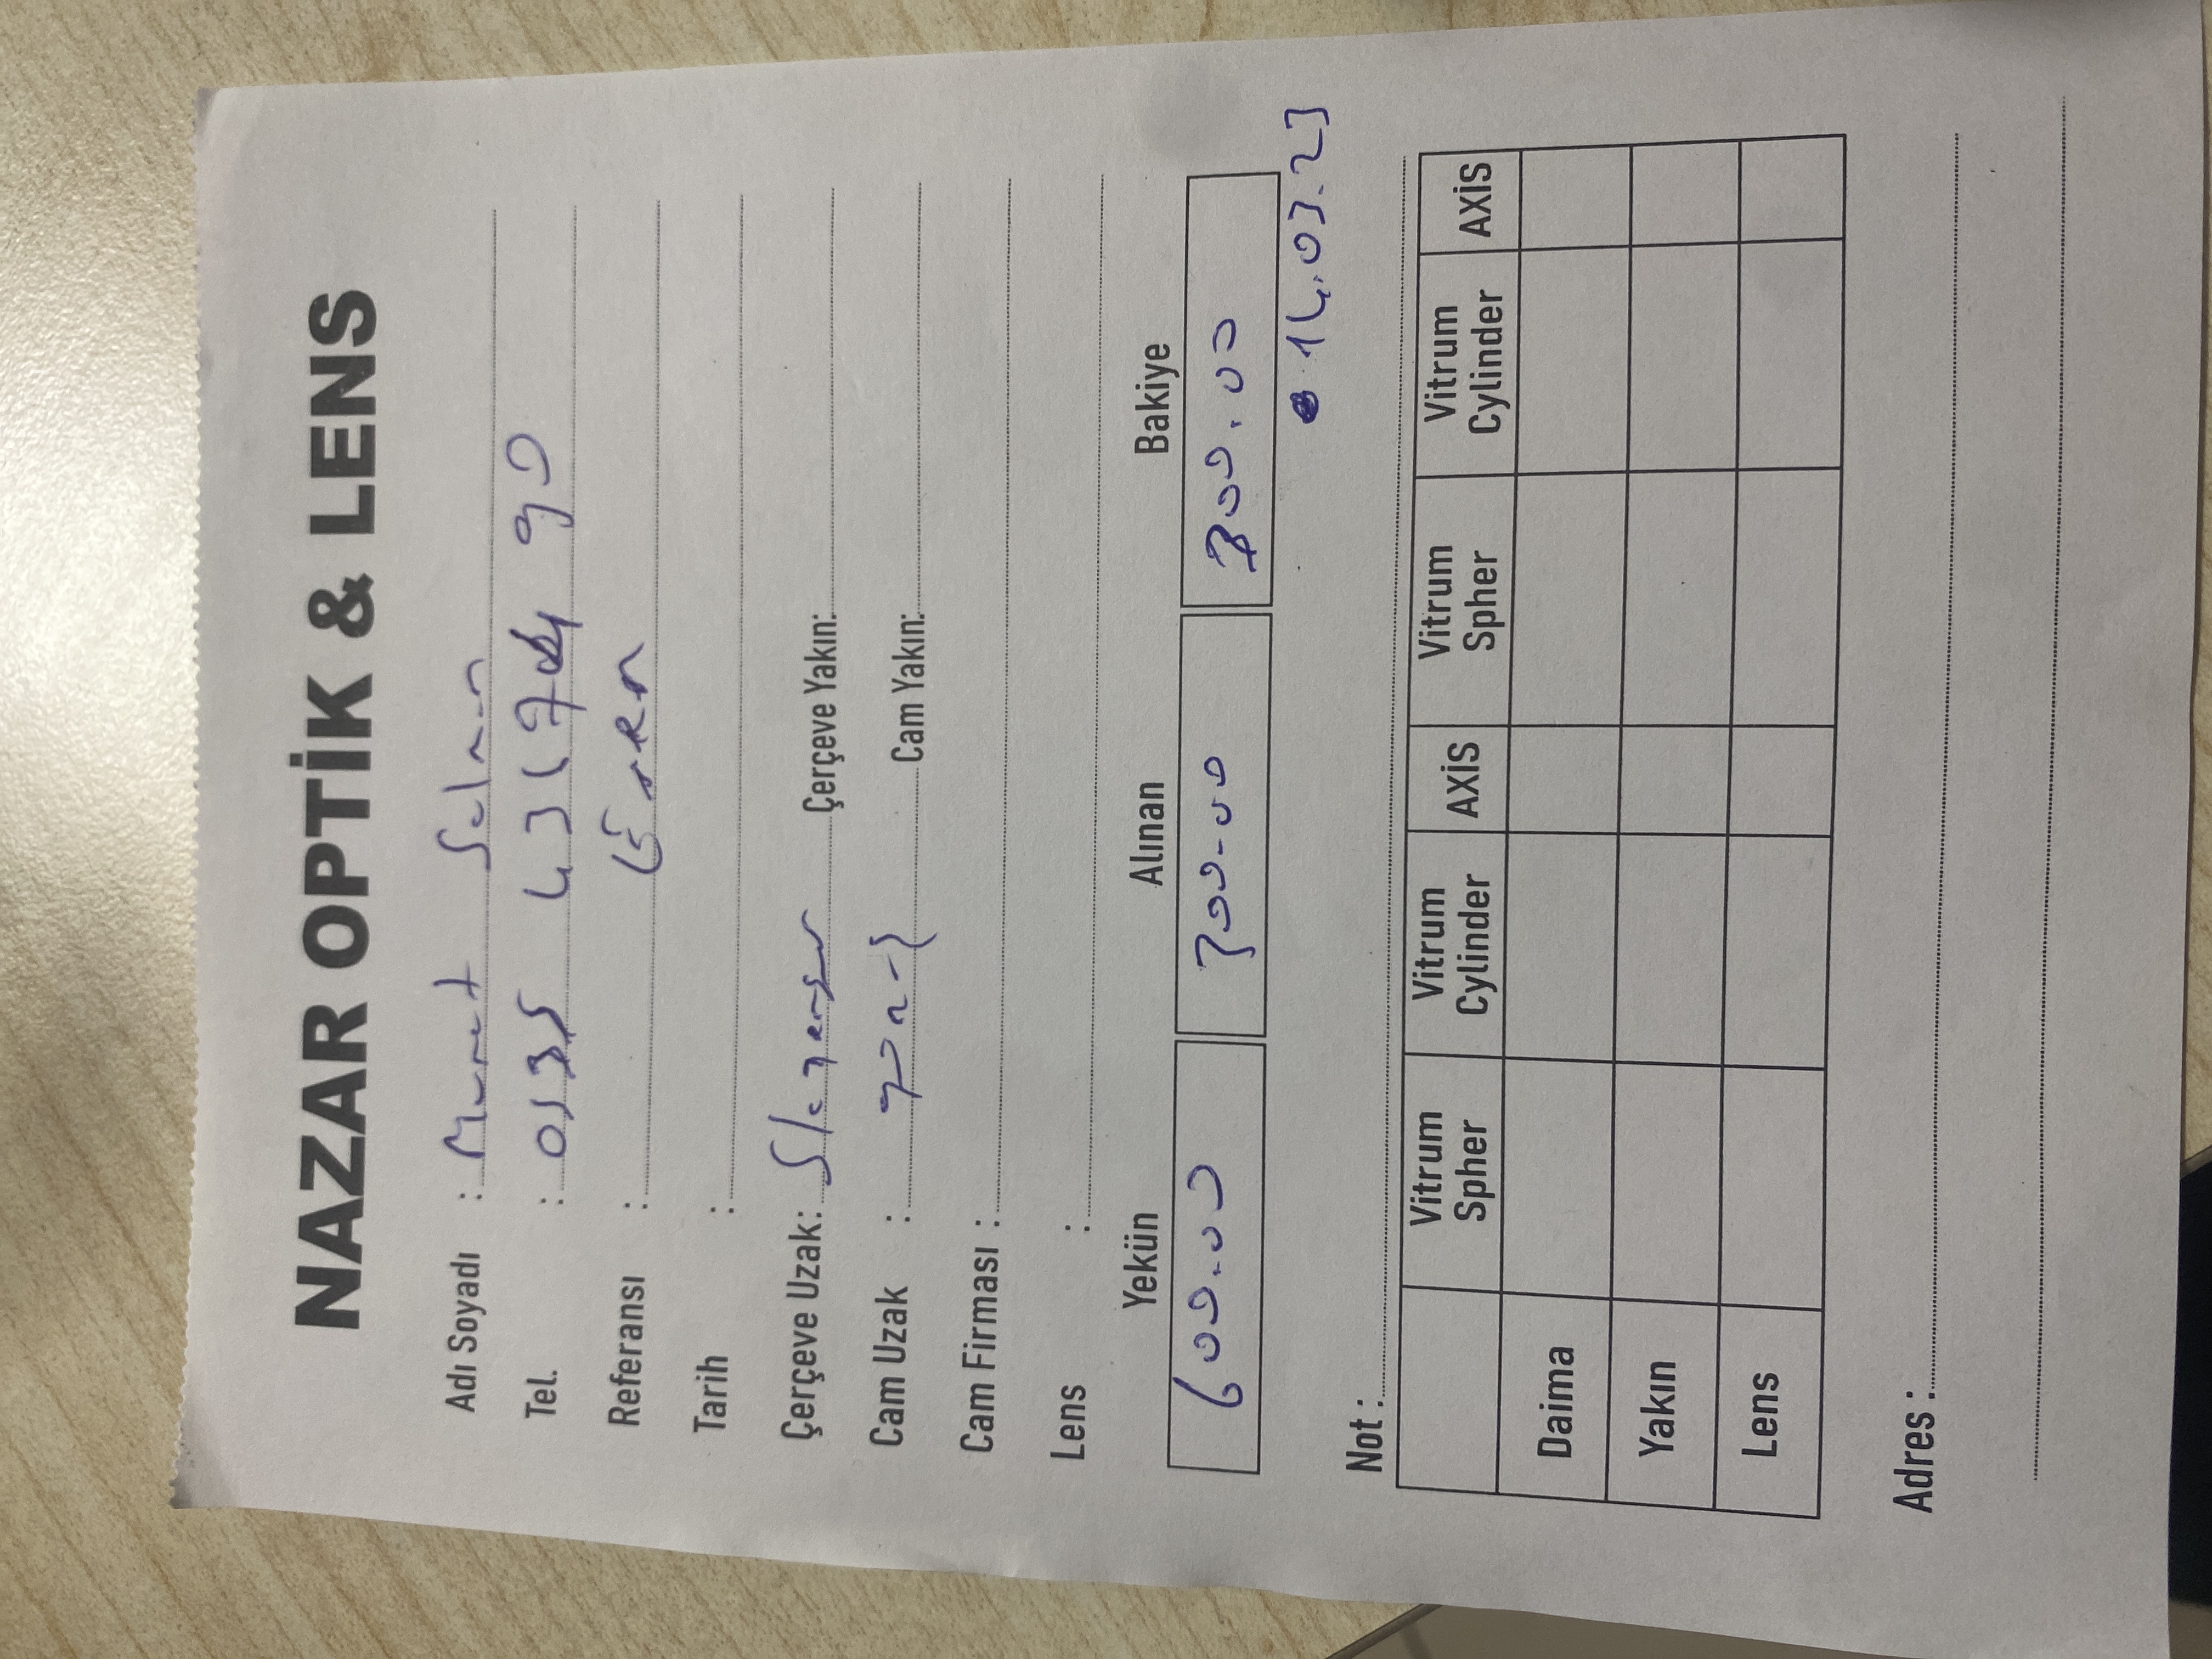 NAZAR OPTİK & LENS
Adı Soyadı : Murat Salman
Tel. : 0535 431 74 90
Referansı : Eren
Tarih :
Çerçeve Uzak: Slazenger Çerçeve Yakın:
Cam Uzak : Cam Yakın:
Cam Firması :
Lens :
Yekün Alınan Bakiye
600.00 300-00 300.00
14.03.23
Not :
Vitrum Spher Vitrum Cylinder AXİS Vitrum Spher Vitrum Cylinder AXİS
Daima
Yakın
Lens
Adres :